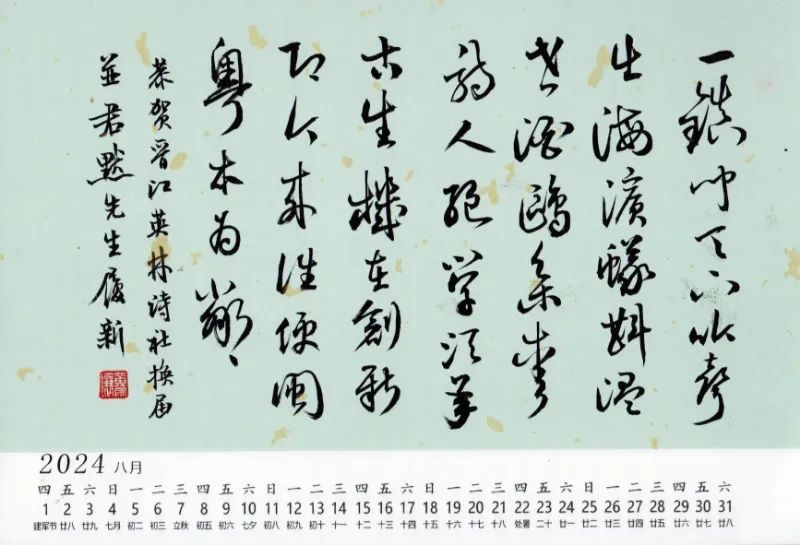 一鎮聞天下
生海濱蠔蚶温
老酒鷗
詩人絕學須
古生機在創新
即今来往便閩
粵本為鄰
恭賀晋江英林詩社换届
並君默先生履新
2024 八月
四 五 六 日 一 二 三 四 五 六 日 一 二 三 四 五 六 日 一 二 三 四 五 六 日 一 二 三 四 五 六
1 2 3 4 5 6 7 8 9 10 11 12 13 14 15 16 17 18 19 20 21 22 23 24 25 26 27 28 29 30 31
建军节 廿八 廿九 七月 初二 初三 立秋 初五 初六 七夕 初八 初九 初十 十一 十二 十三 十四 十五 十六 十七 十八 处暑 二十 廿一 廿二 廿三 廿四 廿五 廿六 廿七 廿八